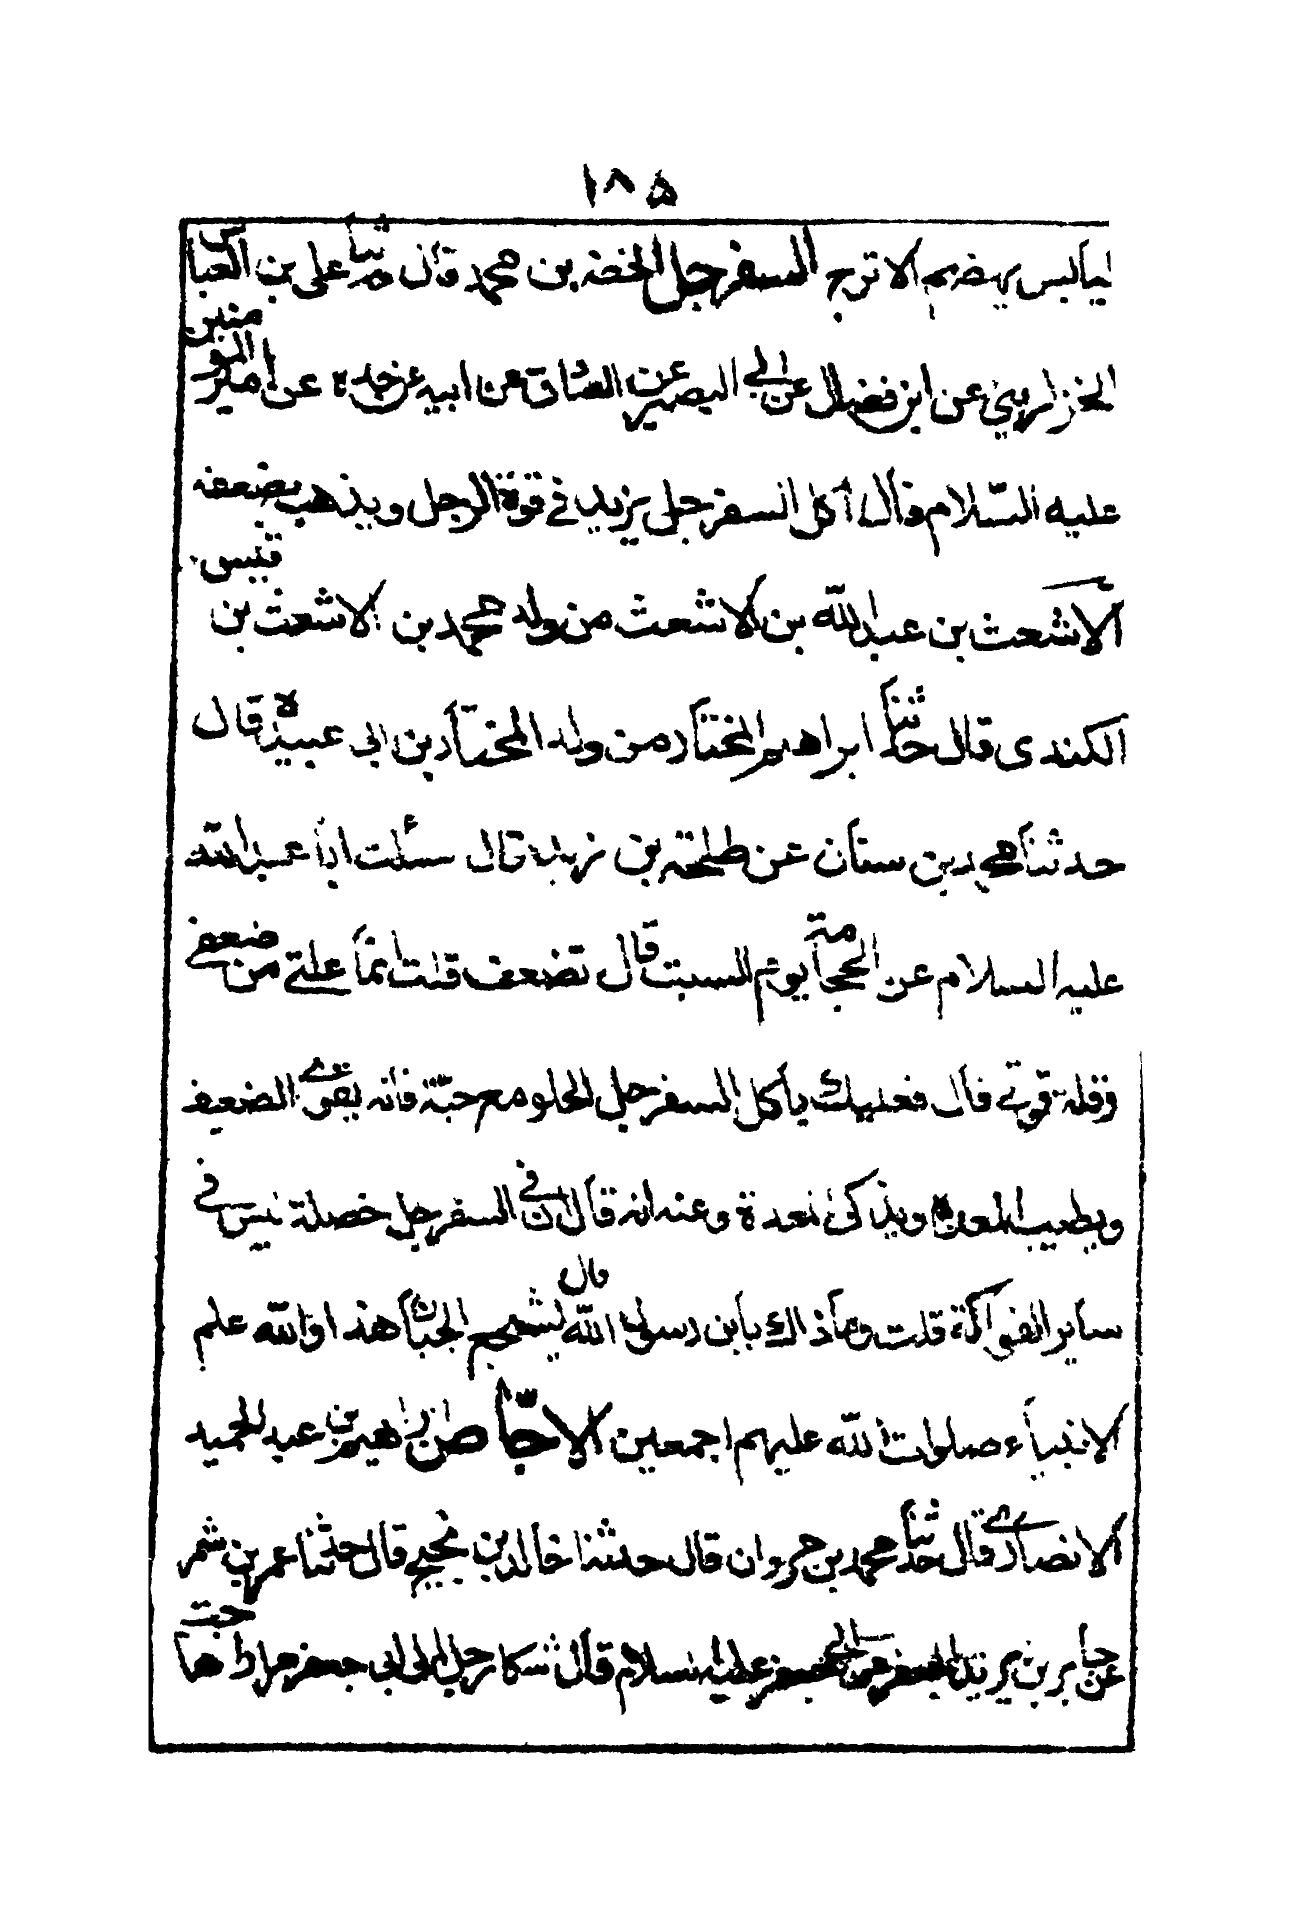 ١٨٥
اليابس يهضم الاترج السفرجل الخضر بن محمد قال حدثنا على بن العباس
الخزاربنى عن ابن فضال عن ابى البصير عن الصادق عن ابيه عن جده عن امير المومنين
عليه السلام قال اكل السفرجل يزيد فى قوة الرجل ويذهب بضعفه
الاشعث بن عبد الله بن الاشعث من ولد محمد بن الاشعث بن قيس
الكندى قال حدثنا ابراهيم المختار من ولد المختار بن ابى عبيدة قال
حدثنا محمد بن سنان عن طلحة بن زيد قال سئلت ابا عبد الله
عليه السلام عن الحجامة يوم السبت قال تضعف قلت انما علتى من ضعفى
وقلة قوتى قال فعليك بأكل السفرجل الحلو مع حبة فانه يقوى الضعيف
ويطيب المعدة ويذكى المعدة وعنه انه قال ان فى السفرجل خصلة ليس فى
ساير الفواكة قلت وما ذاك يابن رسول الله قال يشجع الجبان هذا والله علم
الانبياء صلوات الله عليهم اجمعين الاجاص ابراهيم بن عبد الحميد
الانصارى قال حدثنا محمد بن مروان قال حدثنا خالد بن نجيح قال حدثنا عمر بن شمر
عن جابر بن يزيد الجعفى عن ابى جعفر عليه السلام قال شكا رجل الى ابى جعفر مرارا هاجت